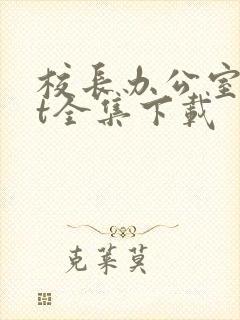 校长办公室
t全集下载
克莱莫